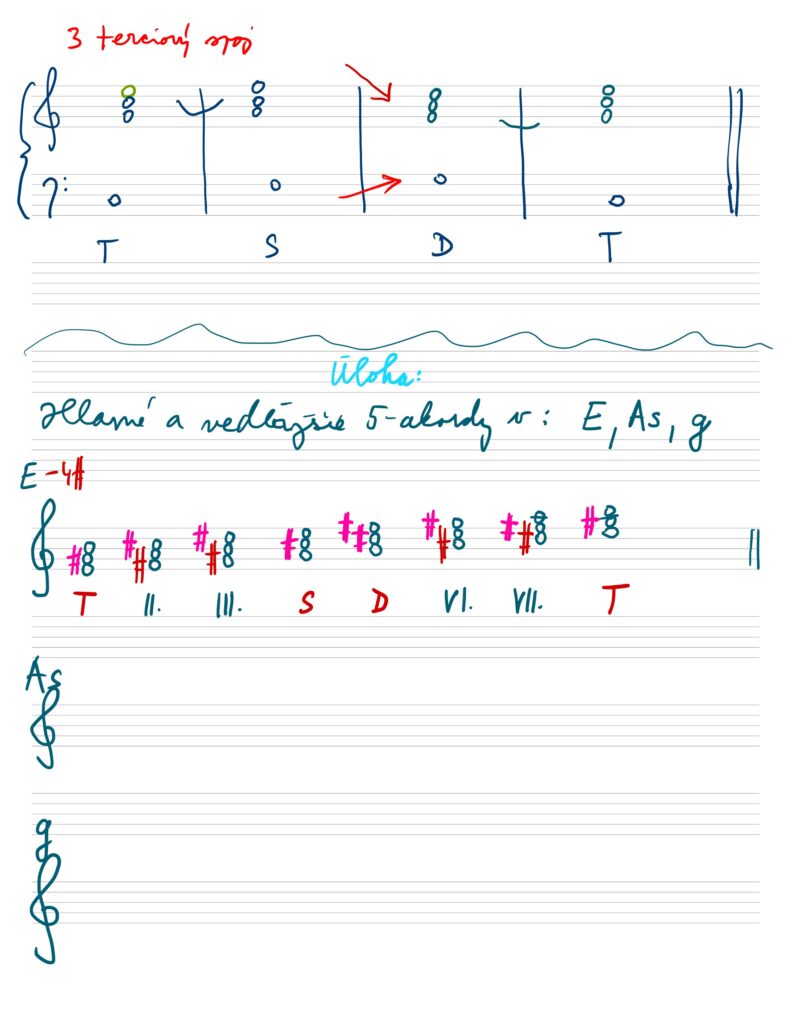 3 terciový spoj
T S D T
Úloha:
Hlavné a vedľajšie 5-akordy v: E, As, g
E -4#
T II. III. S D VI. VII. T
As
g